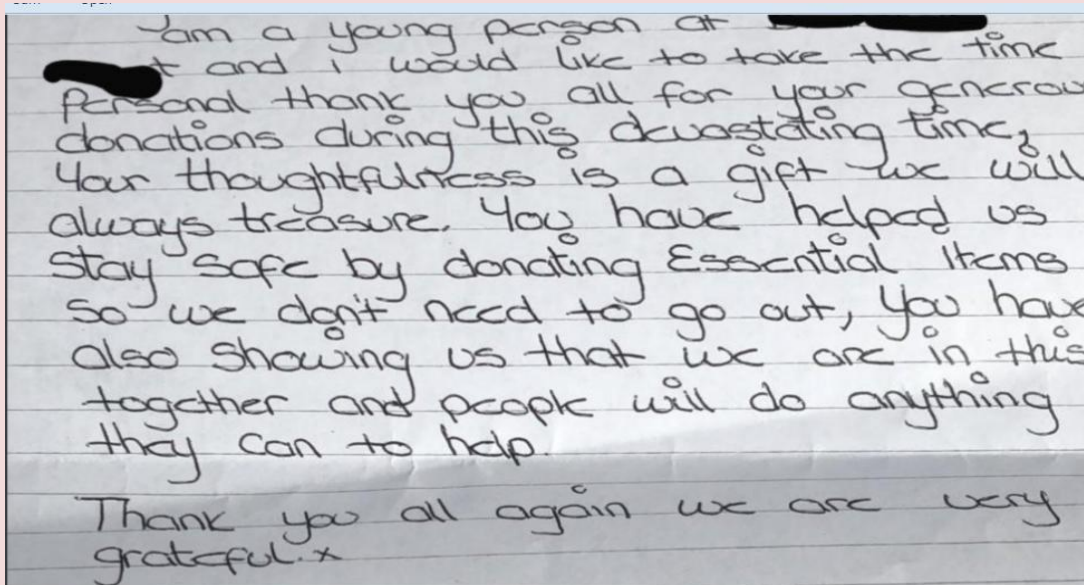 I am a young person at
and i would like to take the time
Personal thank you all for your generou
donations during this devastating time,
Your thoughtfulness is a gift we will
always treasure. You have helped us
Stay safe by donating Essential Items
So we don't need to go out, you have
also showing us that we are in this
together and people will do anything
they can to help.
Thank you all again we are very
grateful.x